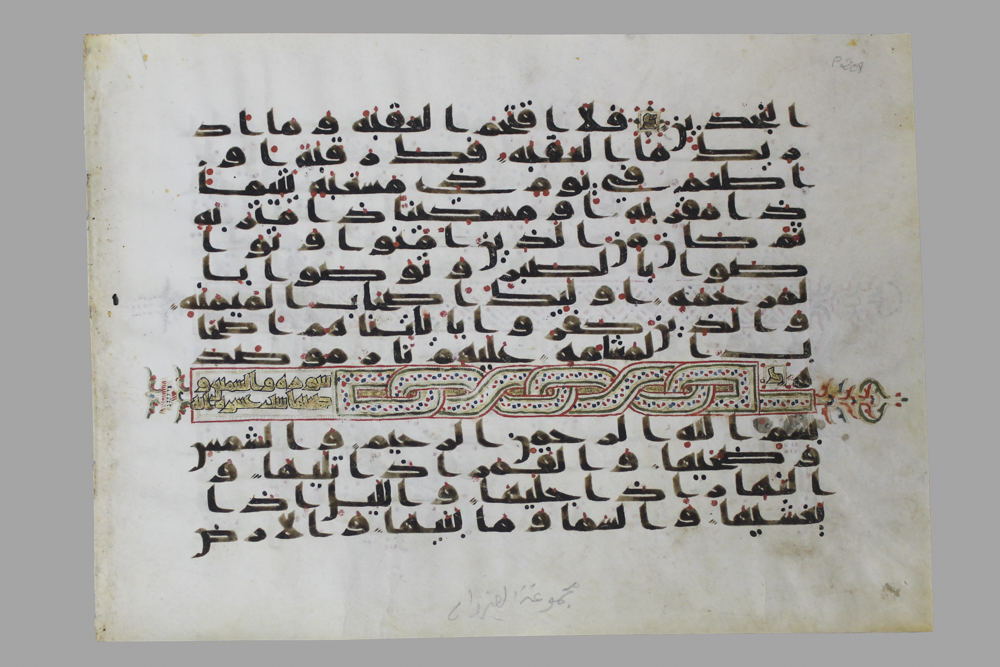 النجدين فلا اقتحم العقبة وما اد
ريك ما العقبة فك رقبة او
اطعم في يوم ذي مسغبة يتيما
ذا مقربة او مسكينا ذا متربة
ثم كان من الذين امنوا وتوا
صوا بالصبر وتوصوا با
لمرحمة اوليك اصحاب الميمنة
والذين كفروا باياتنا هم اصحا
ب المشامة عليهم نار موصد
ة
سورة والشمس و
ضحيها ست عشرة اية
بسم الله الرحمن الرحيم والشمس
وضحيها والقمر اذا تليها و
النهار اذا جليها والليل اذا
يغشيها والسما وما بنيها والارض
مجموعة